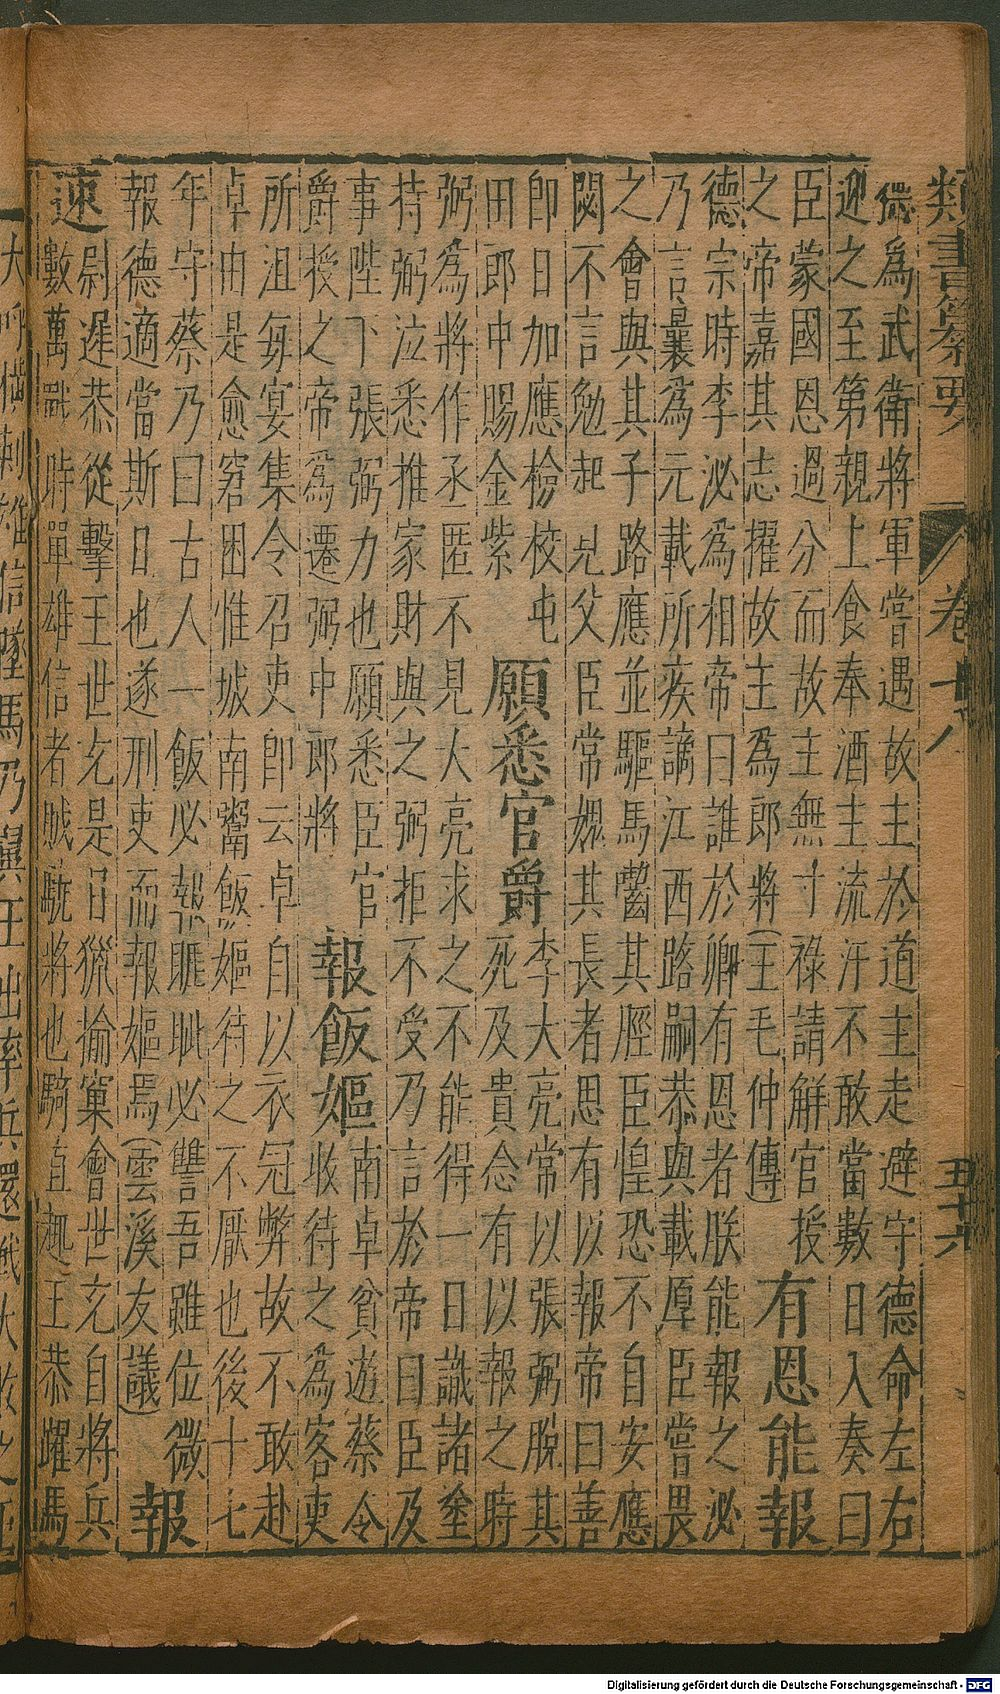 類書纂要 卷十八 五十六
德爲武衛將軍嘗遇故主於道主走避守德命左右
迎之至第親上食奉酒主流汗不敢當數日入奏曰
臣蒙國恩過分而故主無寸祿請解官授
之帝嘉其志擢故主為郎將(王毛仲傳)
有恩能報
德宗時李泌為相帝曰誰於卿有恩者朕能報之泌
乃言曩為元載所疾謫江西路嗣恭與載厚臣嘗畏
之會與其子路應並驅馬齧其脛臣惶恐不自安應
閟不言勉起見父臣常媿其長者思有以報帝曰善
卽日加應檢校屯
田郎中賜金紫
願悉官爵
李大亮常以張弼脫其
死及貴念有以報之時
弼為將作丞匿不見大亮求之不能得一日識諸塗
持弼泣悉推家財與之弼拒不受乃言於帝曰臣及
事陛下張弼力也願悉臣官
爵授之帝為遷弼中郎將
報飯嫗
南卓貧遊蔡令
收待之為客吏
所沮每宴集令召吏卽云卓自以衣冠弊故不敢赴
卓由是愈窘困惟城南鬻飯嫗待之不厭也後十七
年守蔡乃曰古人一飯必報睚眦必讐吾雖位微
報德適當斯日也遂刑吏而報嫗焉(雲溪友議)
報
速
尉遲恭從擊王世充是日獵揄窠會世充自將兵
數萬戰時單雄信者賊驍將也騎直趨王恭躍馬
Digitalisierung gefördert durch die Deutsche Forschungsgemeinschaft - DFG